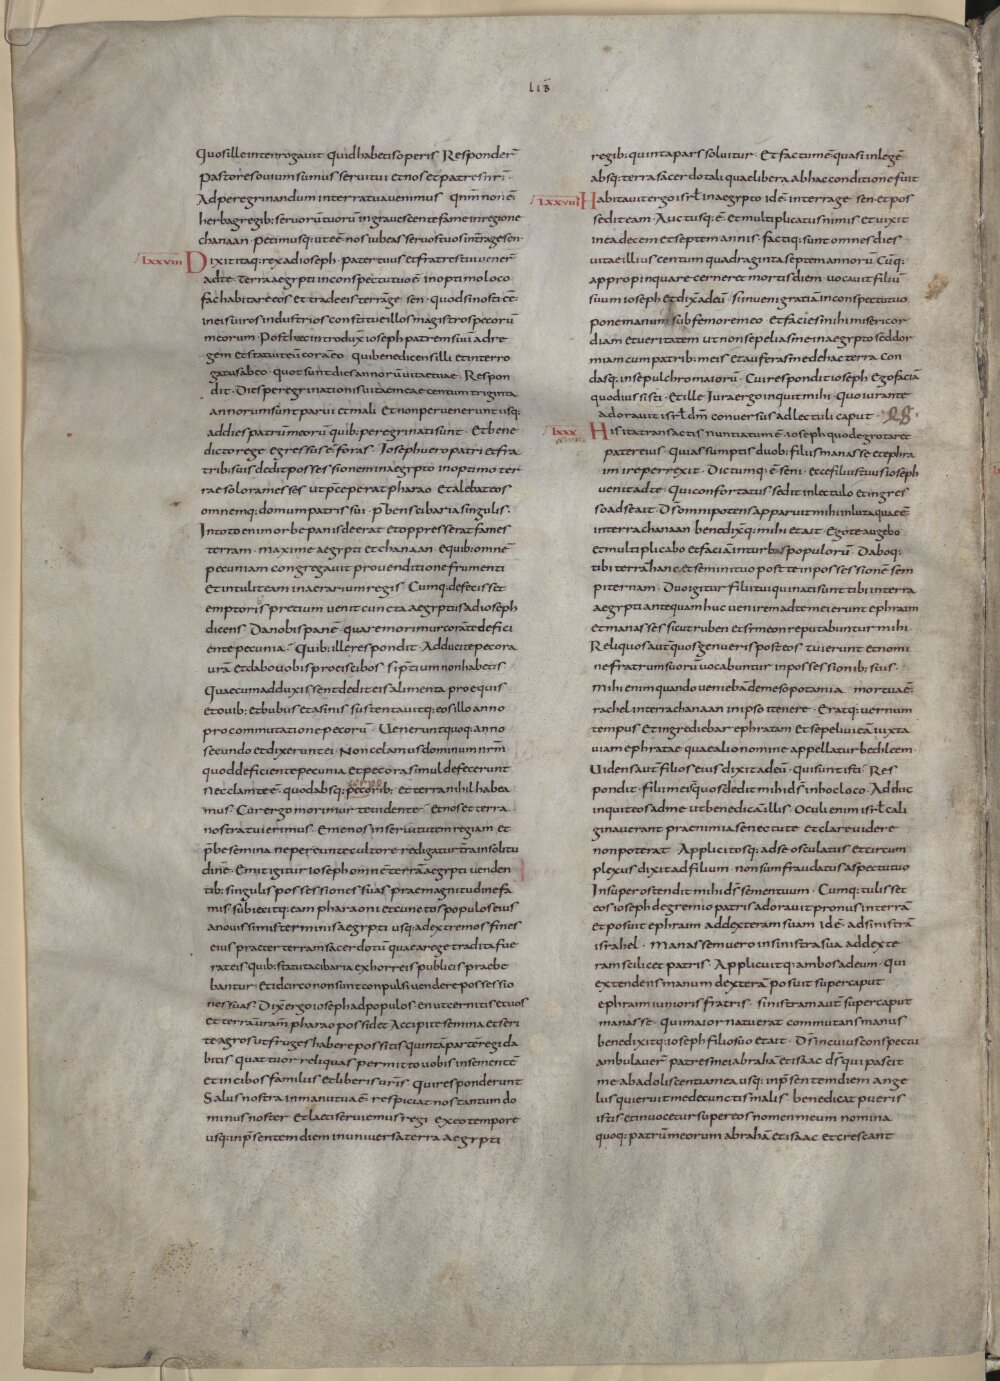 LIB
Quos ille interrogavit Quid habetis operis Responder̄
Pastores ovium sumus servi tui et nos et patres nr̄i·
Ad peregrinandum in terra tua venimus Qm̄ non ē
herba gregib: servorū tuorū ingravescente fame in regione
chanaan· Petimusq: ut ēē nos iubeas servos tuos in terra gesen·
lxxviii Dixit itaq: rex ad ioseph· pater tuus et fratres tui vener̄
ad te· Terra aegypti in conspectu tuo ē in optimo loco
fac habitare eos et trade eis terrā gesen· Quod si nosti ēē
in eis viros industrios constitue illos magistros pecorū
meorum· Post haec introduxit ioseph patrem suū ad re
gem et statuit eū corā eo· Qui benedicens illi et interro
gatus ab eo· quot sunt dies annorū vitae tuae· Respon
dit· Dies peregrinationis vitae meae centum triginta
annorum sunt parvi et mali Et non pervenerunt usq:
ad dies patrū meorū quib: peregrinati sunt· Et bene
dicto rege egressus ē foras· Ioseph vero patri et fra
trib: suis dedit possessionem in aegypto in optimo ter
rae solo ramesses ut p̄ceperat pharao Et alebat eos
omnemq: domum patris sui· p̄bens cibaria singulis·
In toto enim orbe panis deerat et oppresserat fames
terram· maxime aegypti et chanaan· E quib: omnē
pecuniam congregavit pro venditione frumenti
Et intulit eam in aerarium regis· Cumq: defecisset
emptoris pretium venit cuncta aegyptus ad ioseph
dicens· Da nobis panē· quare morimur corā te defici
ente pecunia· Quib: ille respondit· Adducite pecora
vrā et dabo vobis pro eis cibos si p̄tium non habetis
Quae cum adduxissent dedit eis alimenta pro equis
et ovib: et bubus et asinis sustentavitq: eos illo anno
pro commutatione pecorū· Venerunt quoq: anno
secundo et dixerunt ei· Non celamus dominum nr̄m
quod deficiente pecunia et pecora simul defecerunt
Nec clam te ē· quod absq: pecorib: et terra nihil habea
mus· Cur ergo morimur te vidente· Et nos et terra
nostra tui erimus· Eme nos in servitutem regiam et
p̄be semina ne pereunte cultore redigatur terra in solitu
dinē· Emit igitur ioseph omnē terrā aegypti venden
tib: singulis possessiones suas prae magnitudine fa
mis· subiecitq: eam pharaoni et cunctos populos eius
a novissimis terminis aegypti usq: ad extremos fines
eius praeter terram sacerdotū quae a rege tradita fue
rat eis quib: statuta cibaria ex horreis publicis praebe
bantur· Et idcirco non sunt conpulsi vendere possessio
nes suas· Dix̄ ergo ioseph ad populos· en ut cernitis et vos
et terrā vram pharao possidet Accipite semina et seri
te agros ut fruges habere possitis quintā partē regi da
bitis Quattuor reliquas permitto vobis in sementē
et in cibos familiis et liberis vr̄is· Qui responderunt
Salus nostra in manu tua ē respiciat nos tantum do
minus noster Et laeti serviemus regi· Ex eo tempore
usq: in p̄sentem diem in universa terra aegypti
regib: quinta pars solvitur· Et factum ē quasi in legē
absq: terra sacerdotali quae libera ab hac conditione fuit
lxxviiii Habitavit ergo isrl̄ in aegypto id ē in terra gesen· et pos
sedit eam· Auctusq: ē· et multiplicatus nimis et vixit
in ea decem et septem annis· factiq: sunt omnes dies
vitae illius centum quadraginta septem annorū· Cūq:
appropinquare cerneret mortis diem vocavit filiū
suum ioseph et dix̄ ad eū· si inveni gratiā in conspectu tuo
pone manum sub femore meo· et facies mihi misericor
diam et veritatem ut non sepelias me in aegypto sed dor
miam cum patrib: meis et auferas me de hac terra con
dasq: in sepulchro maiorū· Cui respondit ioseph Ego faciā
quod iussisti· Et ille· Iura ergo inquit mihi· Quo iurante
adoravit isrl̄ dm̄ conversus ad lectuli caput·
lxxx His ita transactis nuntiatum ē ioseph quod egrotaret
pater eius· Qui assumptis duob: filiis manasse et ephra
im ire perrexit· Dictumq: ē seni· ecce filius tuus ioseph
venit ad te· Qui confortatus sedit in lectulo et ingres
so ad se ait· Ds̄ omnipotens apparuit mihi in luza quae ē
in terra chanaan benedix̄q: mihi et ait· Ego te augebo
et multiplicabo et faciā in turbas populorū· Daboq:
tibi terrā hanc et semini tuo post te in possessionē sem
piternam· Duo igitur filii tui qui nati sunt tibi in terra
aegypti antequam huc venirem ad te mei erunt ephraim
et manasses sicut ruben et symeon reputabuntur mihi·
Reliquos aut quos genueris post eos tui erunt et nomi
ne fratrum suorū vocabuntur in possessionib: suis·
Mihi enim quando veniebā de mesopotamia mortua ē·
rachel in terra chanaan in ipso itenere· Eratq: vernum
tempus Et ingrediebar ephratam et sepelivi eā iuxta
viam ephratae quae alio nomine appellatur bethleem·
Videns aut filios eius dixit ad eū· Qui sunt isti· Res
pondit· Filii mei sunt quos dedit mihi ds̄ in hoc loco· Adduc
inquit eos ad me ut benedicā illis· Oculi enim isrl̄ cali
ginaverant prae nimia senectute et clare videre
non poterat· Applicitosq: ad se osculatus et circum
plexus dixit ad filium· non sum fraudatus aspectu tuo
Insuper ostendit mihi ds̄ semen tuum· Cumq: tulisset
eos ioseph de gremio patris adoravit pronus in terrā
et posuit ephraim ad dexteram suam id ē· ad sinistrā
israhel· Manassem vero in sinistra sua ad dexte
ram scilicet patris· Applicuitq: ambos ad eum· Qui
extendens manum dexterā posuit super caput
ephraim iunioris fratris· sinistram aut super caput
manasse· Qui maior natu erat commutans manus
benedixitq: ioseph filio suo et ait· Ds̄ in cuius conspectu
ambulaver̄ patres mei abraham et isaac ds̄ qui pascit
me ab adoliscentia mea usq: in p̄sentem diem ange
lus qui eruit me de cunctis malis· benedicat pueris
istis et invocetur super eos nomen meum nomina
quoq: patrū meorum abrahā et isaac et crescant